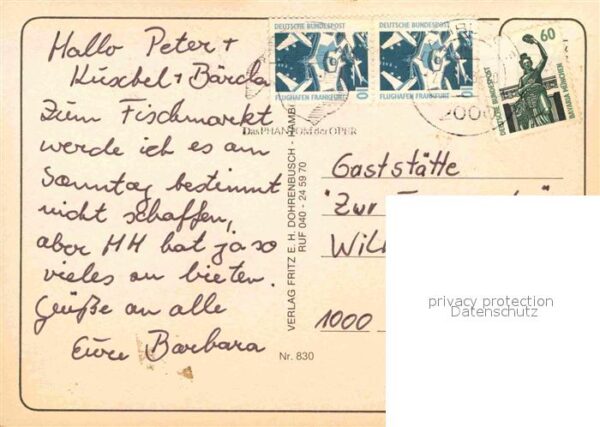 Hallo Peter +
Kuschel + Bärbla
Zum Fischmarkt
werde ich es am
Sonntag bestimmt
nicht schaffen,
aber HH hat ja so
vieles an bieten.
Grüße an alle
Eure Barbara
DEUTSCHE BUNDESPOST
FLUGHAFEN FRANKFURT
10
DEUTSCHE BUNDESPOST
FLUGHAFEN FRANKFURT
10
DEUTSCHE BUNDESPOST
60
BAVARIA MÜNCHEN
2000
Das PHANTOM der OPER
VERLAG FRITZ E. H. DOHRENBUSCH - HAMB
RUF 040 - 24 59 70
Gaststätte
"Zur
1000
Nr. 830
privacy protection
Datenschutz